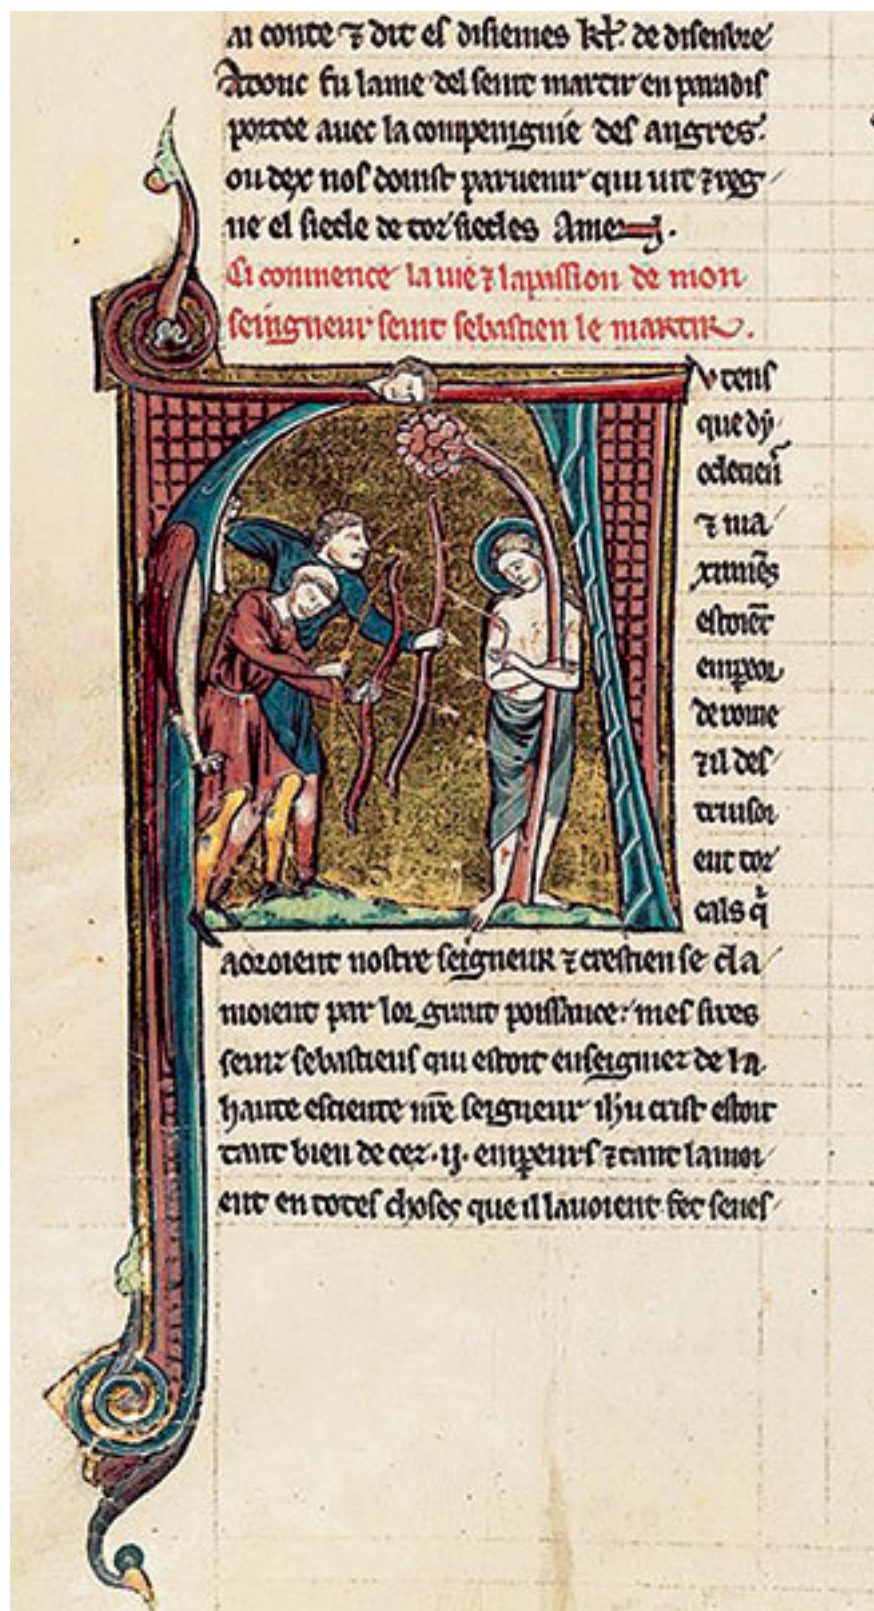 ai conte ⁊ dit el disiemes kl'. de disenbre
Adonc fu lame del seint martir en paradis
portee auec la compeignie des angres.
ou dex nos doinst paruenir qui uit ⁊ reg
ne el siecle de toz siecles Amen.
Ci conmence la uie ⁊ la passion de mon
seingneur seint sebastien le martir.
A
v tens
que dy
oclecien̄
⁊ ma
ximiēs
estoiēt
emp̲eor
de rome
⁊ il des
truisoi
ent toz
cals q̾
aoroient nostre seigneur ⁊ crestien se cla
moient par lor grant poissance: mes sires
seinz sebastiens qui estoit enseigniez de la
haute esciente nr̄e seigneur ih̄u crist estoit
tant bien de cez .ij. emp̲eurs ⁊ tant lamoi
ent en totes choses que il lauoient fet senes